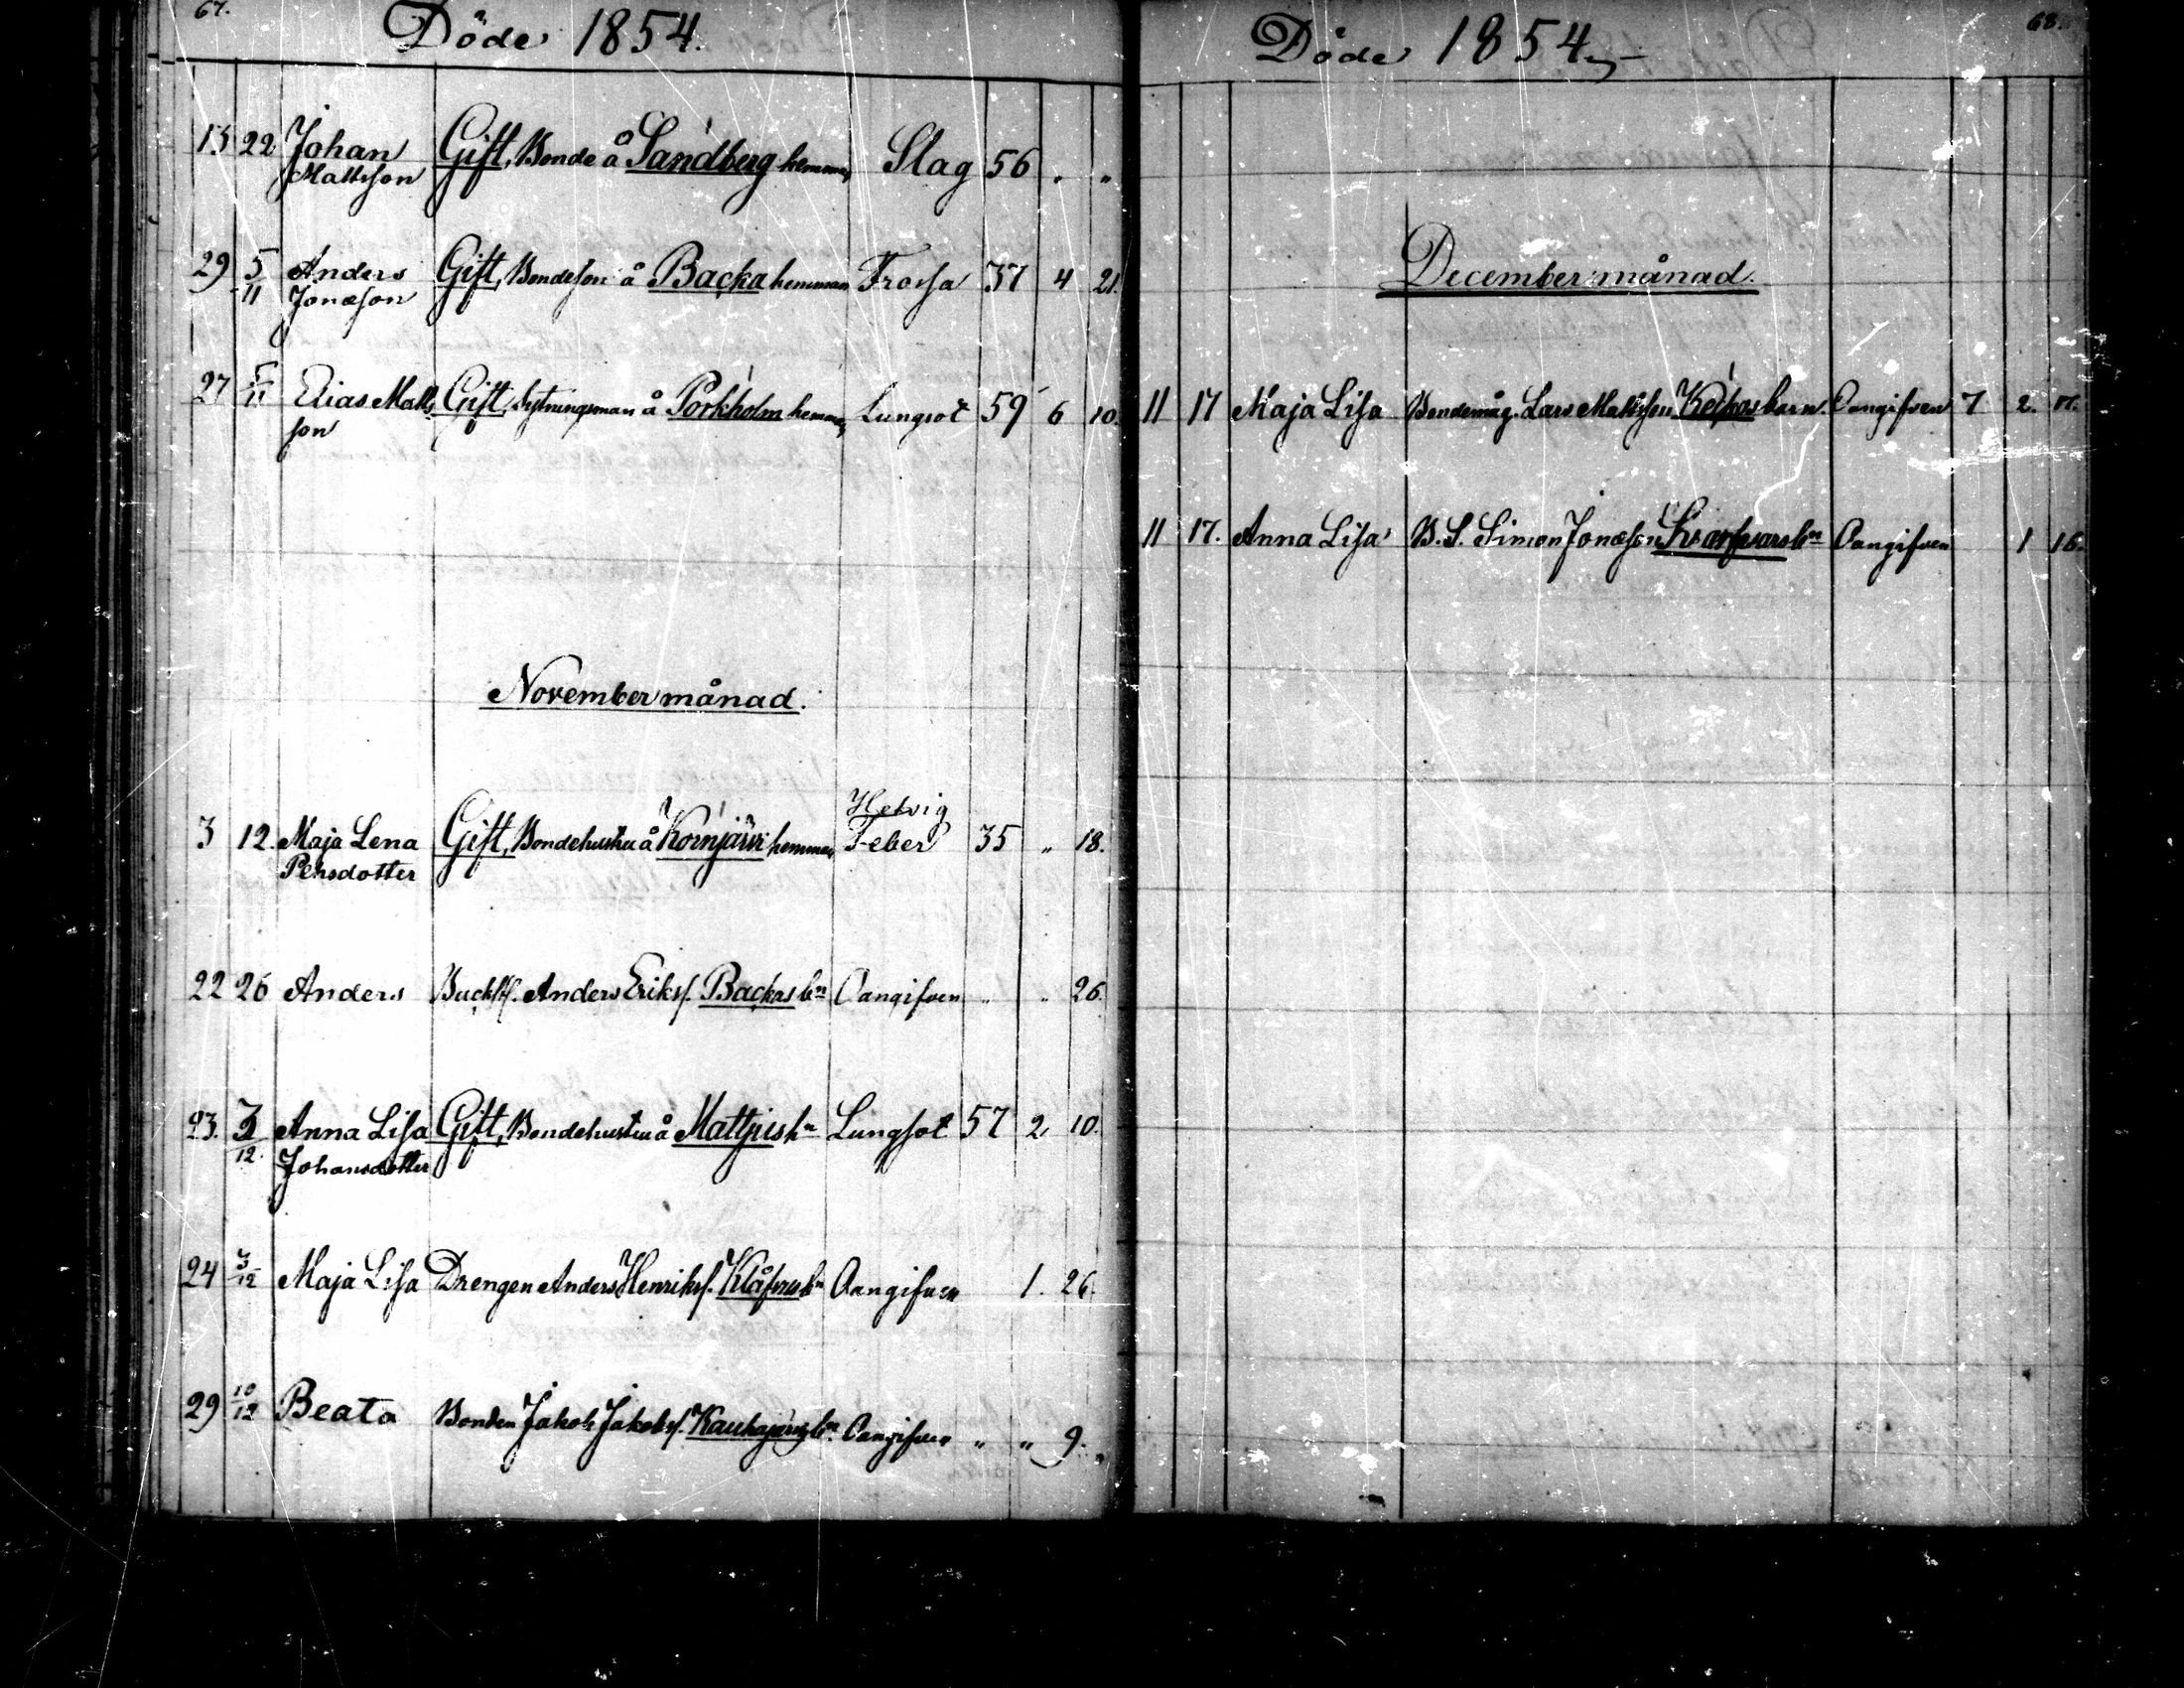 67.
Döde 1854.
13 22 Johan Gift, Bonde å Sandberg hemman Slag 56 " "
Mattsson
29 5/11 Anders Gift, Bondeson å Backa hemman Frossa 37 4 21.
Jonæson
27 5/11 Elias Matts Gift, Sytningsman å Porkholm hemman Lungsot 59 6 10.
son
November månad.
Hetsig
3 12. Maja Lena Gift, Bondehustru å Kornjärvi hemman Feber 35 " 18.
Pehrsdotter
22 26 Anders Anders Eriks. Backas bn Oangifven " " 26.
23. 3/12 Anna Lisa Gift, Bondehustru å Mattjus hn Lungsot 57 2 10.
Johansdotter
24 3/12 Maja Lisa Drengen Anders Henriks. Klåfrus bn Oangifven 1. 26.
29 10/12 Beata Bonden Jakob Jakobs. Kauhajärvi bn Oangifven " " 9.
68.
Döde 1854
December månad.
11 17 Maja Lisa Bondemåg. Lars Mattsson Keckos barn. Oangifven 7 2. 17.
11 17. Anna Lisa B. S. Simon Jonæson Svarfvars bn Oangifven 1 16.